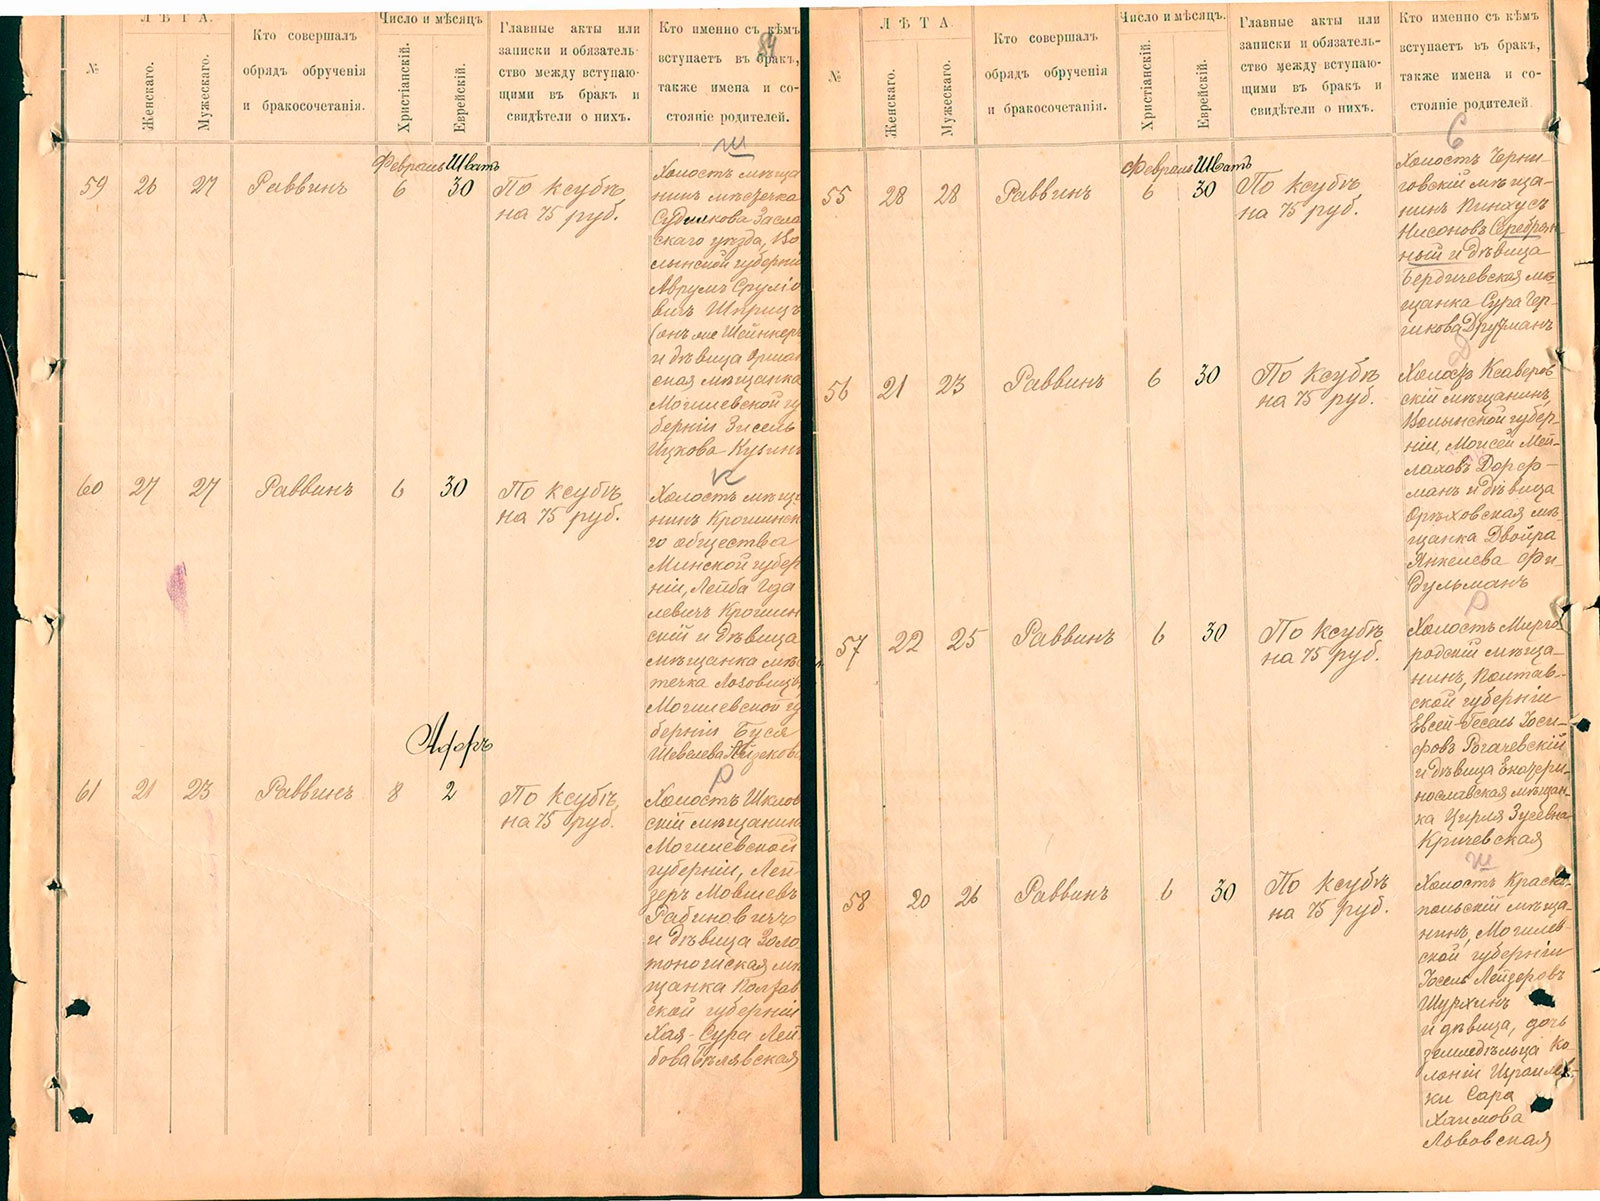 ЛѢТА.
Число и мѣсяцъ
№
Женскаго.
Мужескаго.
Кто совершалъ
обрядъ обрученія
и бракосочетанія.
Христіанскій.
Еврейскій.
Главные акты или
записки и обязатель-
ство между вступаю-
щими въ бракъ и
свидѣтели о нихъ.
Кто именно съ кѣмъ
вступаетъ въ бракъ,
также имена и со-
стояніе родителей.
84
ш
Февраль Шватъ
59 26 27 Раввинъ 6 30 По ксубѣ
на 75 руб.
Холостъ мѣща
нинъ мѣстечка
Судилкова Засла
скаго уѣзда, Во
лынской губерніи
Аврумъ Сруліо
вичъ Шприцъ
(онъ же Шейнкеръ
и дѣвица Оршан
ская мѣщанка
Могилевской гу
берніи Зисель
Ицкова Кузин
к
60 27 27 Раввинъ 6 30 По ксубѣ
на 75 руб.
Холостъ мѣща
нинъ Крошинск
го общества
Минской губер
ніи, Лейба Гда
левичъ Крошин
скій и дѣвица
мѣщанка мѣс
течка
Могилевской гу
берніи Буся
Шевелева
Адаръ
р
61 21 23 Раввинъ 8 2 По ксубѣ,
на 75 руб.
Холостъ Шклов
скій мѣщанинъ
Могилевской
губерніи, Лей
зеръ Мовшевъ
Рабиновичъ
и дѣвица Золо
тоношская мѣ
щанка Полтав
ской губерніи
Хая-Сура Лей
бова Бѣлявская
ЛѢТА.
Число и мѣсяцъ.
№
Женскаго.
Мужескаго.
Кто совершалъ
обрядъ обрученія
и бракосочетанія.
Христіанскій.
Еврейскій.
Главные акты или
записки и обязатель-
ство между вступаю-
щими въ бракъ и
свидѣтели о нихъ.
Кто именно съ кѣмъ
вступаетъ въ бракъ,
также имена и со-
стояніе родителей.
С
Февраль Шватъ
55 28 28 Раввинъ 6 30 По ксубѣ
на 75 руб.
Холостъ Черни-
говскій мѣща-
нинъ Пинхусъ
Нисоновъ Серебрен
ный и дѣвица
Бердичевская мѣ
щанка Сура Гер-
шкова Друзманъ
56 21 23 Раввинъ 6 30 По ксубѣ
на 75 руб.
Холостъ Ксаверов
скій мѣщанинъ,
Волынской губер-
ніи, Моисей Мей-
лаховъ Дорф-
манъ и дѣвица
Орѣховская мѣ-
щанка Двойра
Янкелева Фи-
дульманъ
р
57 22 25 Раввинъ 6 30 По ксубѣ
на 75 руб.
Холостъ Мирго-
родскій мѣща-
нинъ, Полтав-
ской губерніи
Евсей-Гесель Іоси-
фовъ Рогачевскій
и дѣвица Екатери-
нославская мѣщан-
ка Цирля Зусевна
Кричевская
ш
58 20 26 Раввинъ 6 30 По ксубѣ
на 75 руб.
Холостъ Красно-
польскій мѣща-
нинъ, Могилев-
ской губерніи
Іосель Лейзеровъ
Шурхинъ
и дѣвица, дочь
земледѣльца Ко-
лоніи Израилев-
ки Сара
Хаимова
Львовская